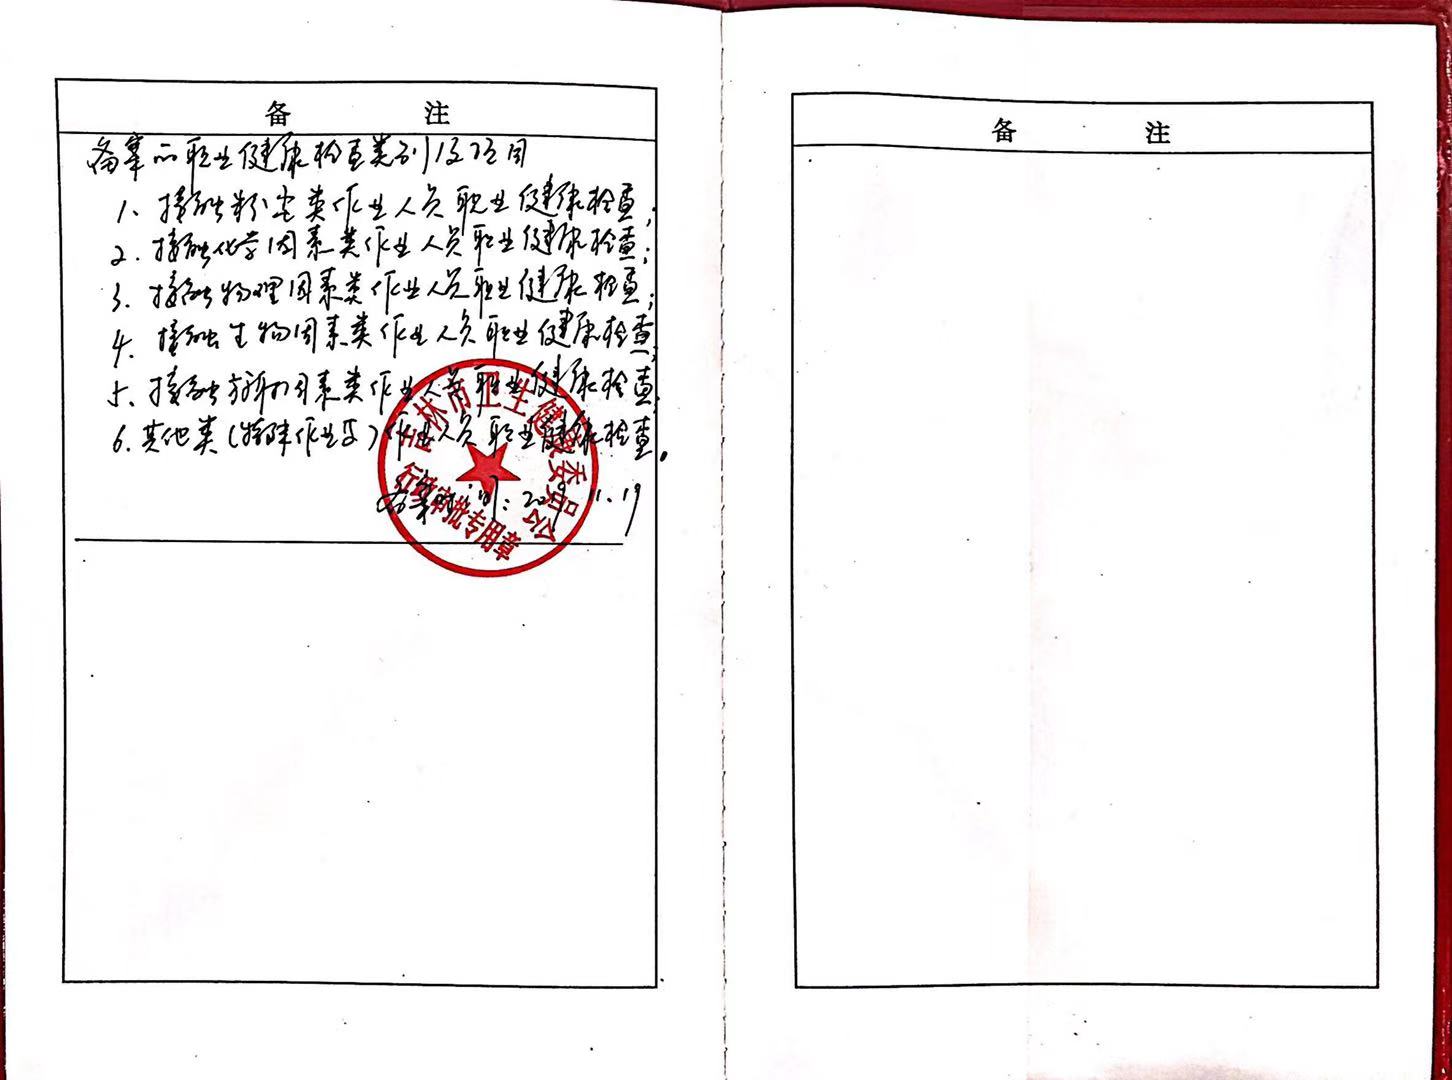 备 注
备案的职业健康检查类别及项目
1、接触粉尘类作业人员职业健康检查;
2、接触化学因素类作业人员职业健康检查;
3、接触物理因素类作业人员职业健康检查;
4、接触生物因素类作业人员职业健康检查;
5、接触放射因素类作业人员职业健康检查;
6、其他类(特殊作业等)作业人员职业健康检查。
备案时间:2019.11.19
吉林市卫生健康委员会
行政审批专用章
备 注